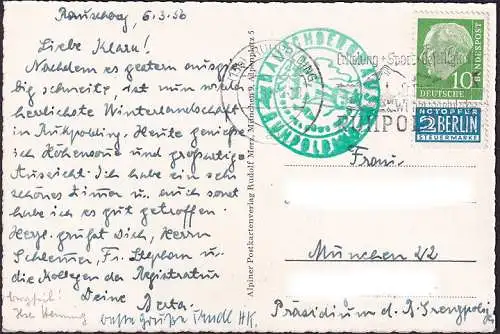 Rauschberg, 6.3.56
Liebe Klara!
Nachdem es gestern ausgie-
big schneite, ist nun wieder
herrlichste Winterlandschaft
in Ruhpolding. Heute genieße
ich Höhensonne und großartige
Aussicht. Ich habe ein sehr
schönes Zimmer u. auch sonst
habe ich es gut getroffen.
Herzl. grüßt Dich, Herrn
Schlemer, Fr. Stephan u.
die Kollegen der Registratur
Deine Berta.
beste Grüße
Alpiner Postkartenverlag Rudolf Menz, München 9, Alpenplatz 5
RAUSCHBERG
RUHPOLDING
Erholung + Sport
RUHPOL
10
DEUTSCHE
BUNDESPOST
NOTOPFER
2 BERLIN
STEUERMARKE
Frau
München 22
Präsidium d. B. Grenzpolizei